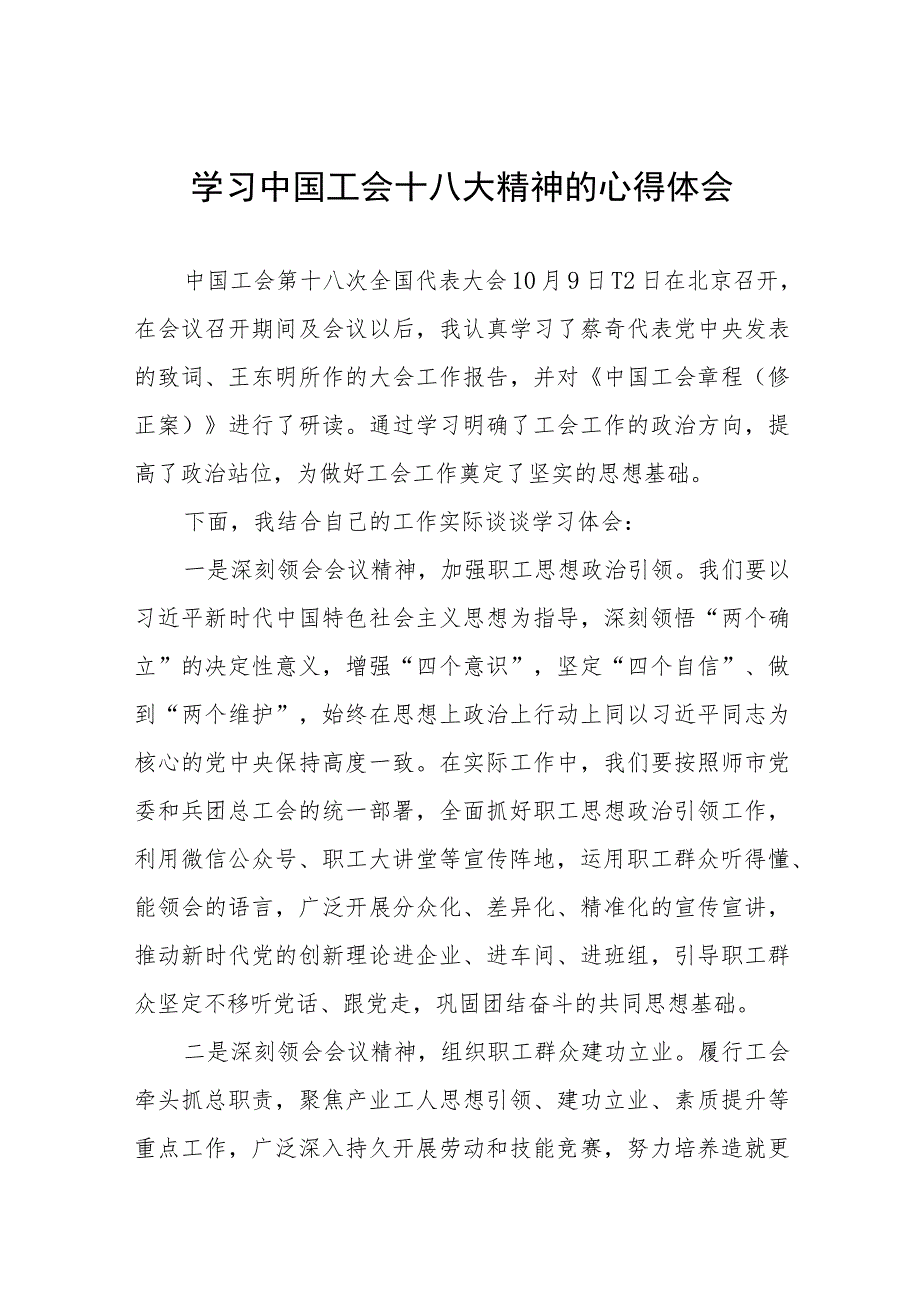 学习中国工会十八大精神的心得体会
中国工会第十八次全国代表大会10月9日T2日在北京召开，
在会议召开期间及会议以后，我认真学习了蔡奇代表党中央发表
的致词、王东明所作的大会工作报告，并对《中国工会章程（修
正案）》进行了研读。通过学习明确了工会工作的政治方向，提
高了政治站位，为做好工会工作奠定了坚实的思想基础。
下面，我结合自己的工作实际谈谈学习体会：
一是深刻领会会议精神，加强职工思想政治引领。我们要以
习近平新时代中国特色社会主义思想为指导，深刻领悟“两个确
立”的决定性意义，增强“四个意识”，坚定“四个自信”、做
到“两个维护”，始终在思想上政治上行动上同以习近平同志为
核心的党中央保持高度一致。在实际工作中，我们要按照师市党
委和兵团总工会的统一部署，全面抓好职工思想政治引领工作，
利用微信公众号、职工大讲堂等宣传阵地，运用职工群众听得懂、
能领会的语言，广泛开展分众化、差异化、精准化的宣传宣讲，
推动新时代党的创新理论进企业、进车间、进班组，引导职工群
众坚定不移听党话、跟党走，巩固团结奋斗的共同思想基础。
二是深刻领会会议精神，组织职工群众建功立业。履行工会
牵头抓总职责，聚焦产业工人思想引领、建功立业、素质提升等
重点工作，广泛深入持久开展劳动和技能竞赛，努力培养造就更